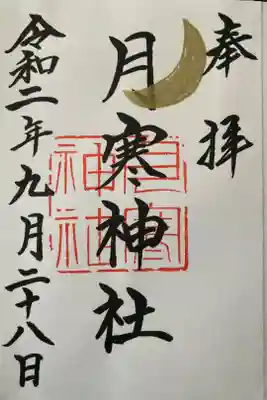 奉拝
月寒神社
月寒神社
令和二年九月二十八日